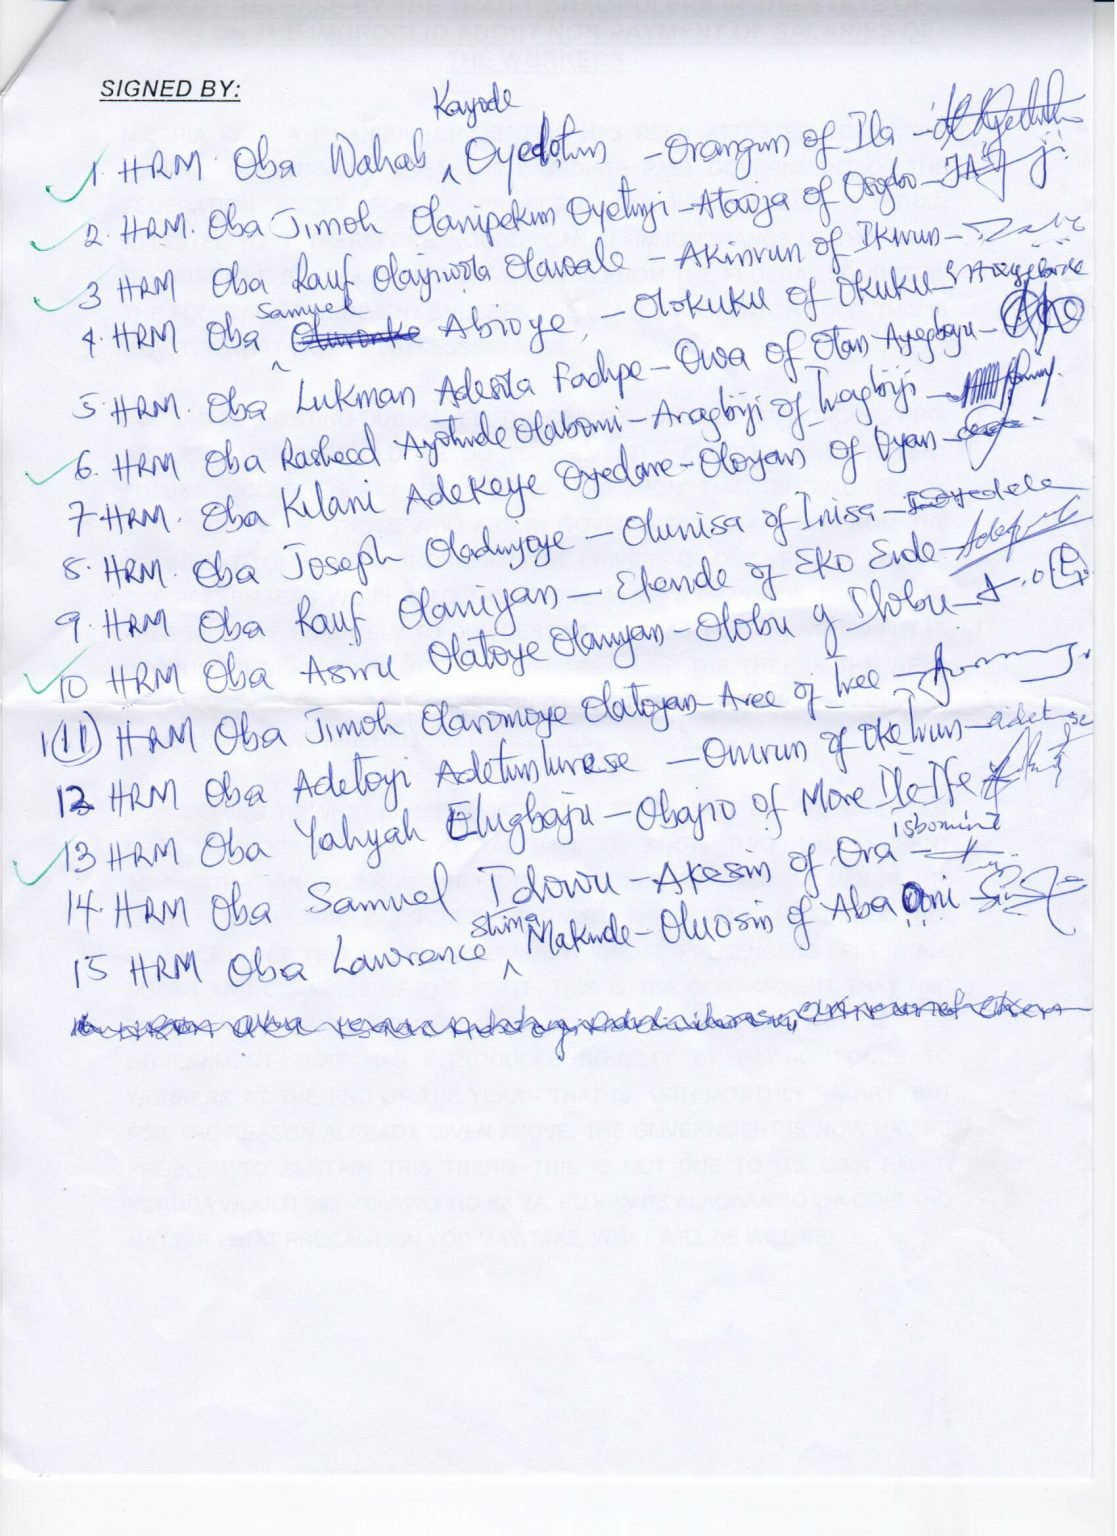 SIGNED BY:
1. HRM. Oba Wahab Kayode Oyedotun - Orangun of Ila -
2. HRM. Oba Jimoh Olanipekun Oyetunji - Ataoja of Osogbo -
3 HRM Oba Rauf Olayiwola Olawale - Akinrun of Ikirun -
4. HRM Oba Samuel Abioye, - Olokuku of Okuku -
5. HRM. Oba Lukman Adesola Fadipe - Owa of Otan Ayegbaju -
6. HRM Oba Rasheed Ayotunde Olabomi - Aragbiji of Iragbiji -
7 HRM. Oba Kilani Adekeye Oyedare - Oloyan of Oyan -
8. HRM. Oba Joseph Oladunjoye - Olunisa of Inisa -
9. HRM Oba Rauf Olaniyan - Elende of Eko Ende -
10 HRM Oba Asiru Olatoye Olaniyan - Olobu of Ilobu -
(11) HRM Oba Jimoh Olaromoye Olatoyan - Aree of Iree -
12 HRM Oba Adetoyi Adetunturese - Onirun of Oke Irun -
13 HRM Oba Yahyah Elugbaju - Obajio of More Ile Ife
14. HRM Oba Samuel Idowu - Akesin of Ora Igbomina -
15 HRM Oba Lawrence Makinde - Oluosin of Aba Oni -